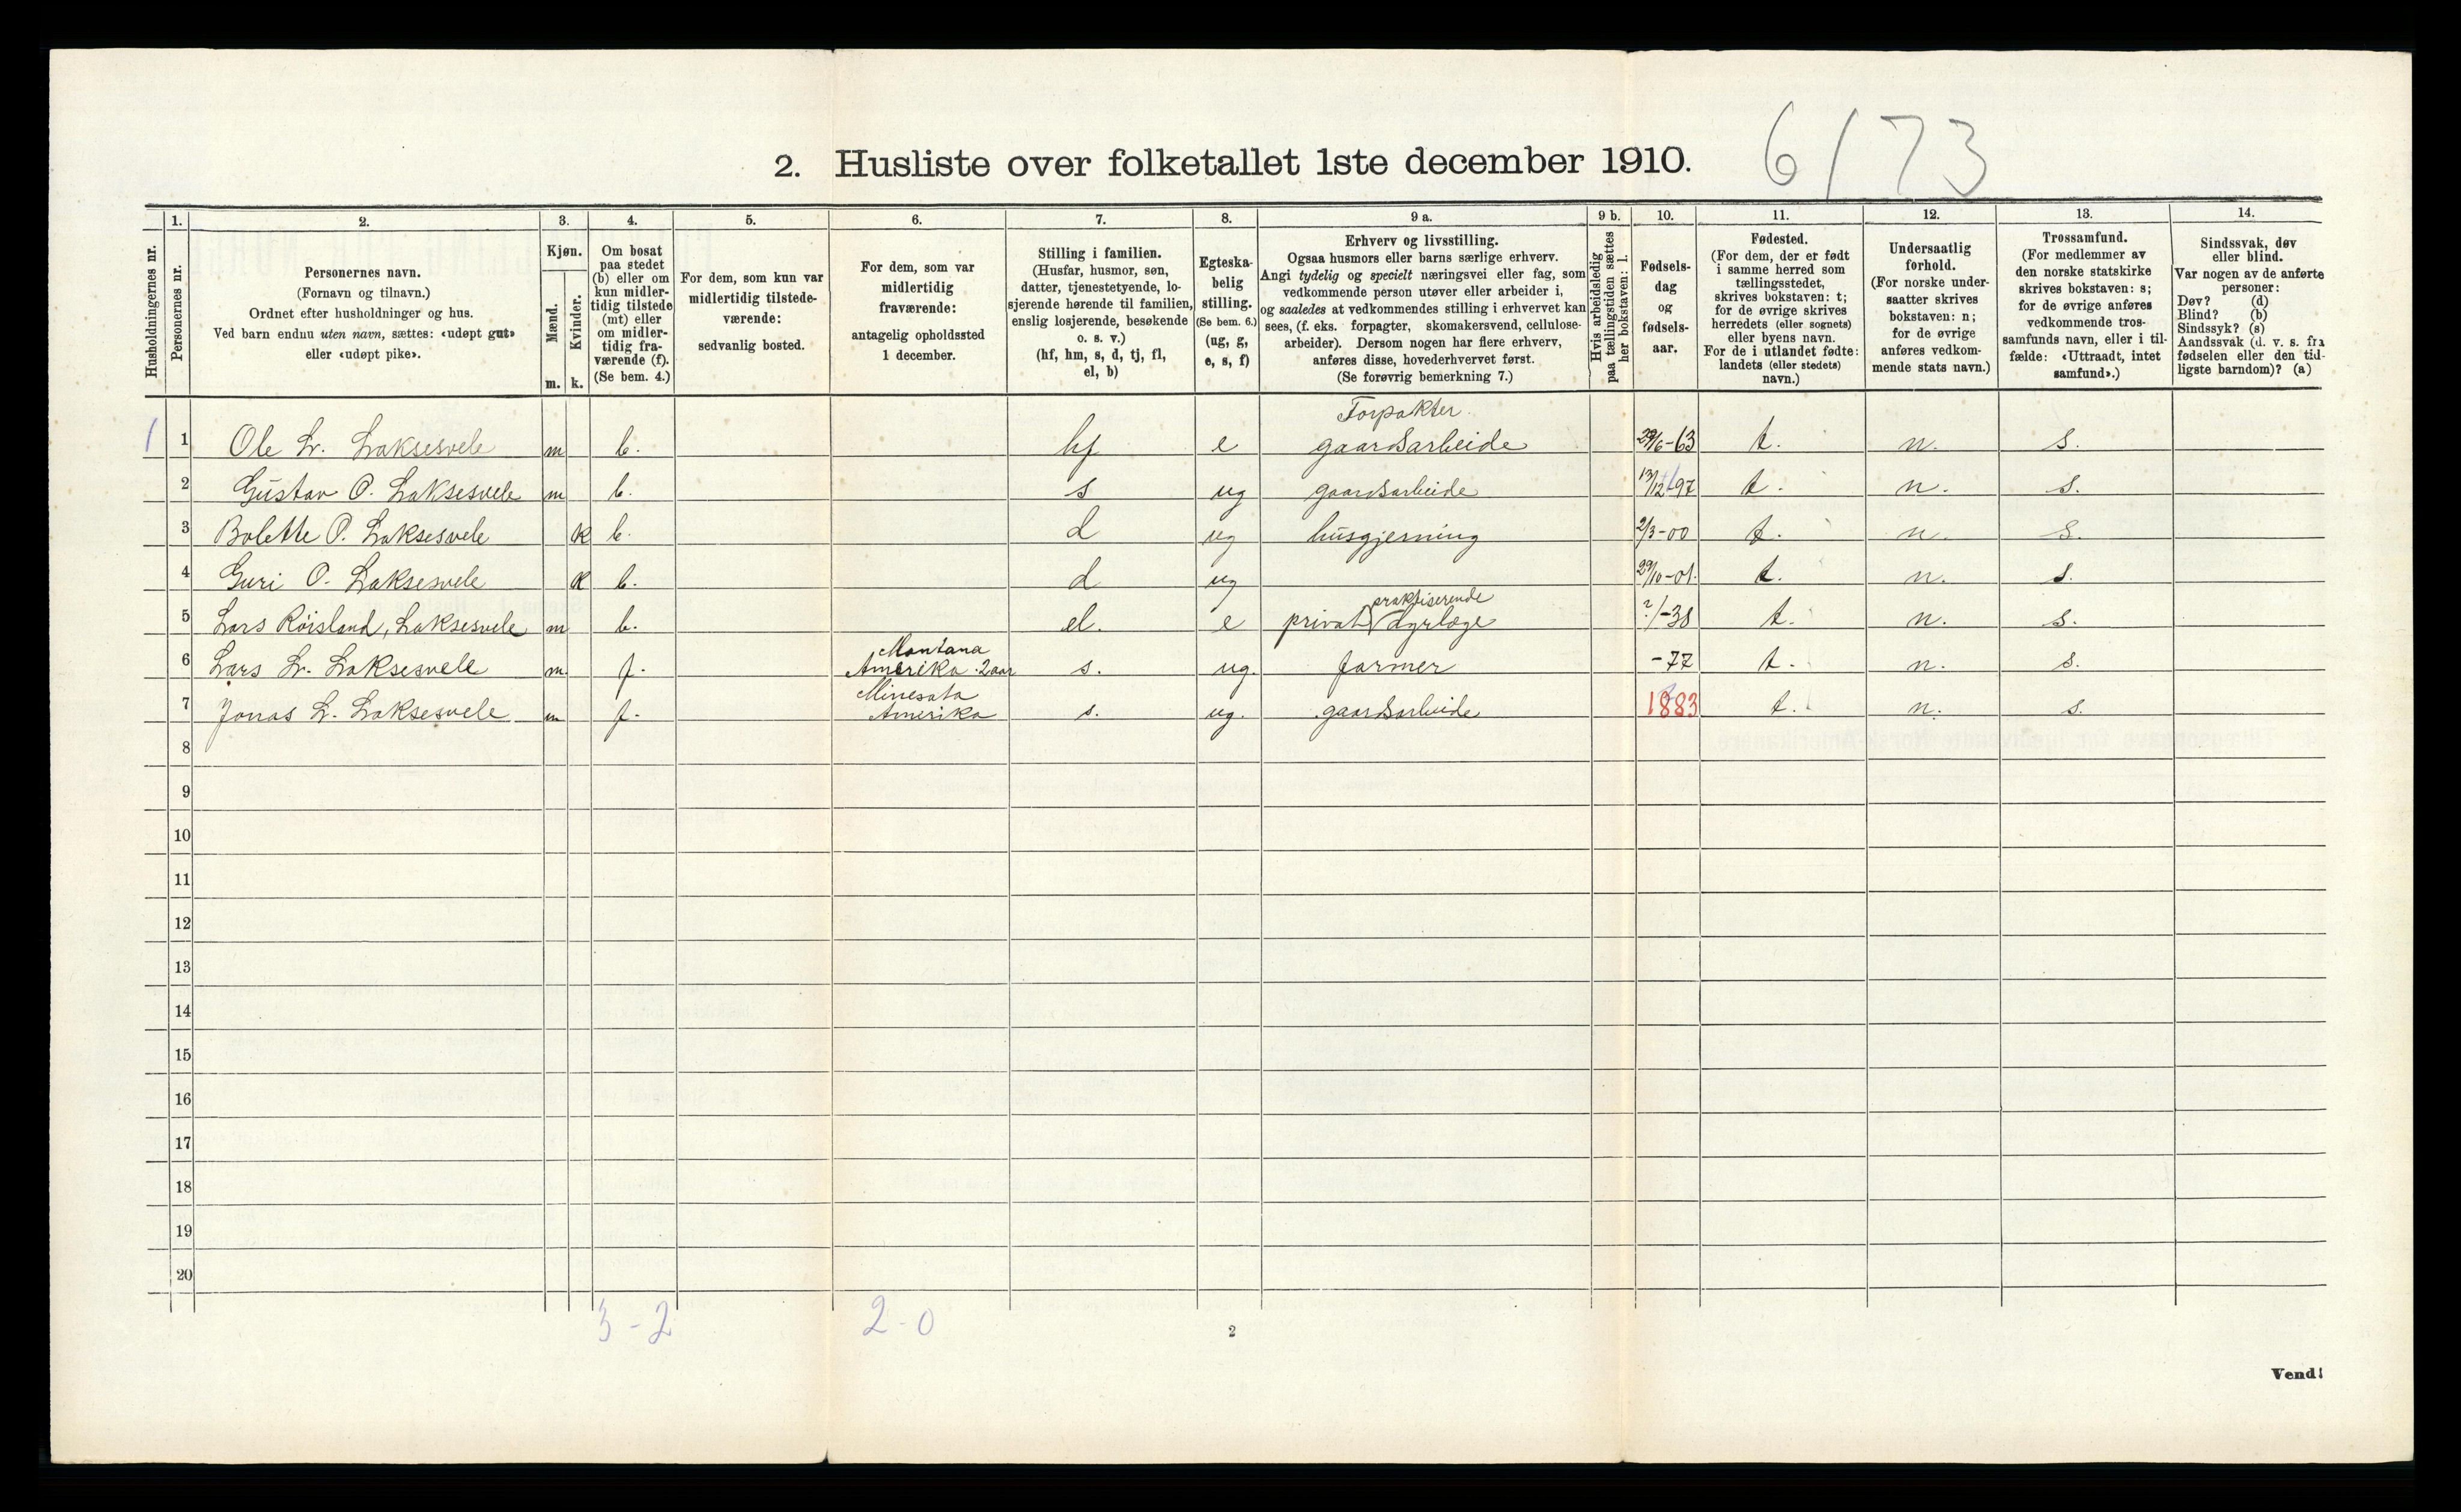 6/73
2. Husliste over folketallet 1ste december 1910.
Husholdningernes nr.
1.
Personernes nr.
2.
Personernes navn.
(Fornavn og tilnavn.)
Ordnet efter husholdninger og hus.
Ved barn endnu uten navn, sættes: «udøpt gut»
eller «udøpt pike».
3.
Kjøn.
Mænd.
Kvinder.
m. k.
4.
Om bosat
paa stedet
(b) eller om
kun midler-
tidig tilstede
(mt) eller
om midler-
tidig fra-
værende (f).
(Se bem. 4.)
5.
For dem, som kun var
midlertidig tilstede-
værende:
sedvanlig bosted.
6.
For dem, som var
midlertidig
fraværende:
antagelig opholdssted
1 december.
7.
Stilling i familien.
(Husfar, husmor, søn,
datter, tjenestetyende, lo-
sjerende hørende til familien,
enslig losjerende, besøkende
o. s. v.)
(hf, hm, s, d, tj, fl,
el, b)
8.
Egteska-
belig
stilling.
(Se bem. 6.)
(ug, g,
e, s, f)
9 a.
Erhverv og livsstilling.
Ogsaa husmors eller barns særlige erhverv.
Angi tydelig og specielt næringsvei eller fag, som
vedkommende person utøver eller arbeider i,
og saaledes at vedkommendes stilling i erhvervet kan
sees, (f. eks. forpagter, skomakersvend, cellulose-
arbeider). Dersom nogen har flere erhverv,
anføres disse, hovederhvervet først.
(Se forøvrig bemerkning 7.)
9 b.
Hvis arbeidsledig
paa tællingstiden sættes
her bokstaven: l.
10.
Fødsels-
dag
og
fødsels-
aar.
11.
Fødested.
(For dem, der er født
i samme herred som
tællingsstedet,
skrives bokstaven: t;
for de øvrige skrives
herredets (eller sognets)
eller byens navn.
For de i utlandet fødte:
landets (eller stedets)
navn.)
12.
Undersaatlig
forhold.
(For norske under-
saatter skrives
bokstaven: n;
for de øvrige
anføres vedkom-
mende stats navn.)
13.
Trossamfund.
(For medlemmer av
den norske statskirke
skrives bokstaven: s;
for de øvrige anføres
vedkommende tros-
samfunds navn, eller i til-
fælde: «Uttraadt, intet
samfund».)
14.
Sindssvak, døv
eller blind.
Var nogen av de anførte
personer:
Døv? (d)
Blind? (b)
Sindssyk? (s)
Aandssvak (d. v. s. fra
fødselen eller den tid-
ligste barndom)? (a)
Forpakter
1 1 Ole L. Laksesvele m b. hf e gaardsarbeide 29/6-63 t. n. s.
2 Gustav O. Laksesvele m b. s ug gaardsarbeide 13/12-97 t. n. s.
3 Bolette O. Laksesvele k b. d ug husgjerning 2/3-00 t. n. s.
4 Guri O. Laksesvele k b. d ug 29/10-01. t. n. s.
praktiserende
5 Lars Röisland, Laksesvele m b. el. e privat dyrlæge ?/-38 t. n. s.
Montana
6 Lars L. Laksesvele m. f. Amerika 2 aar s. ug. farmer -77 t. n. s.
Minesata
7 Jonas L. Laksesvele m f. Amerika s. ug. gaardsarbeide 1883 t. n. s.
8
9
10
11
12
13
14
15
16
17
18
19
20
3-2 2-0
2
Vend!